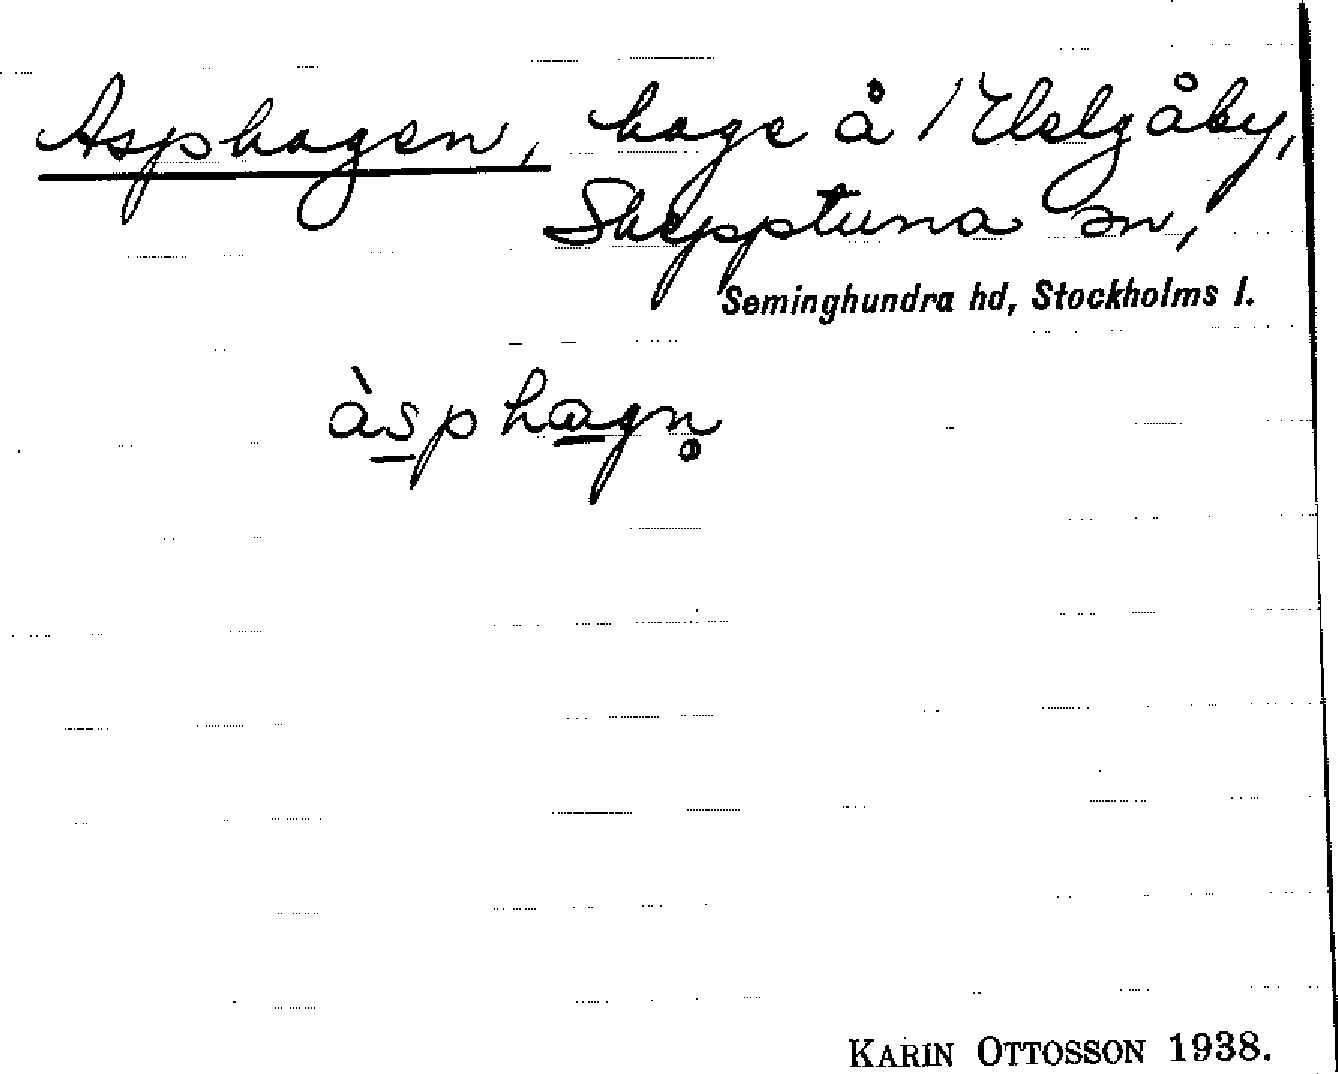 Asphagen, hage å Helgåby,
Skepptuna sn,
Seminghundra hd, Stockholms l.
àsphagn̥
KARIN OTTOSSON 1938.